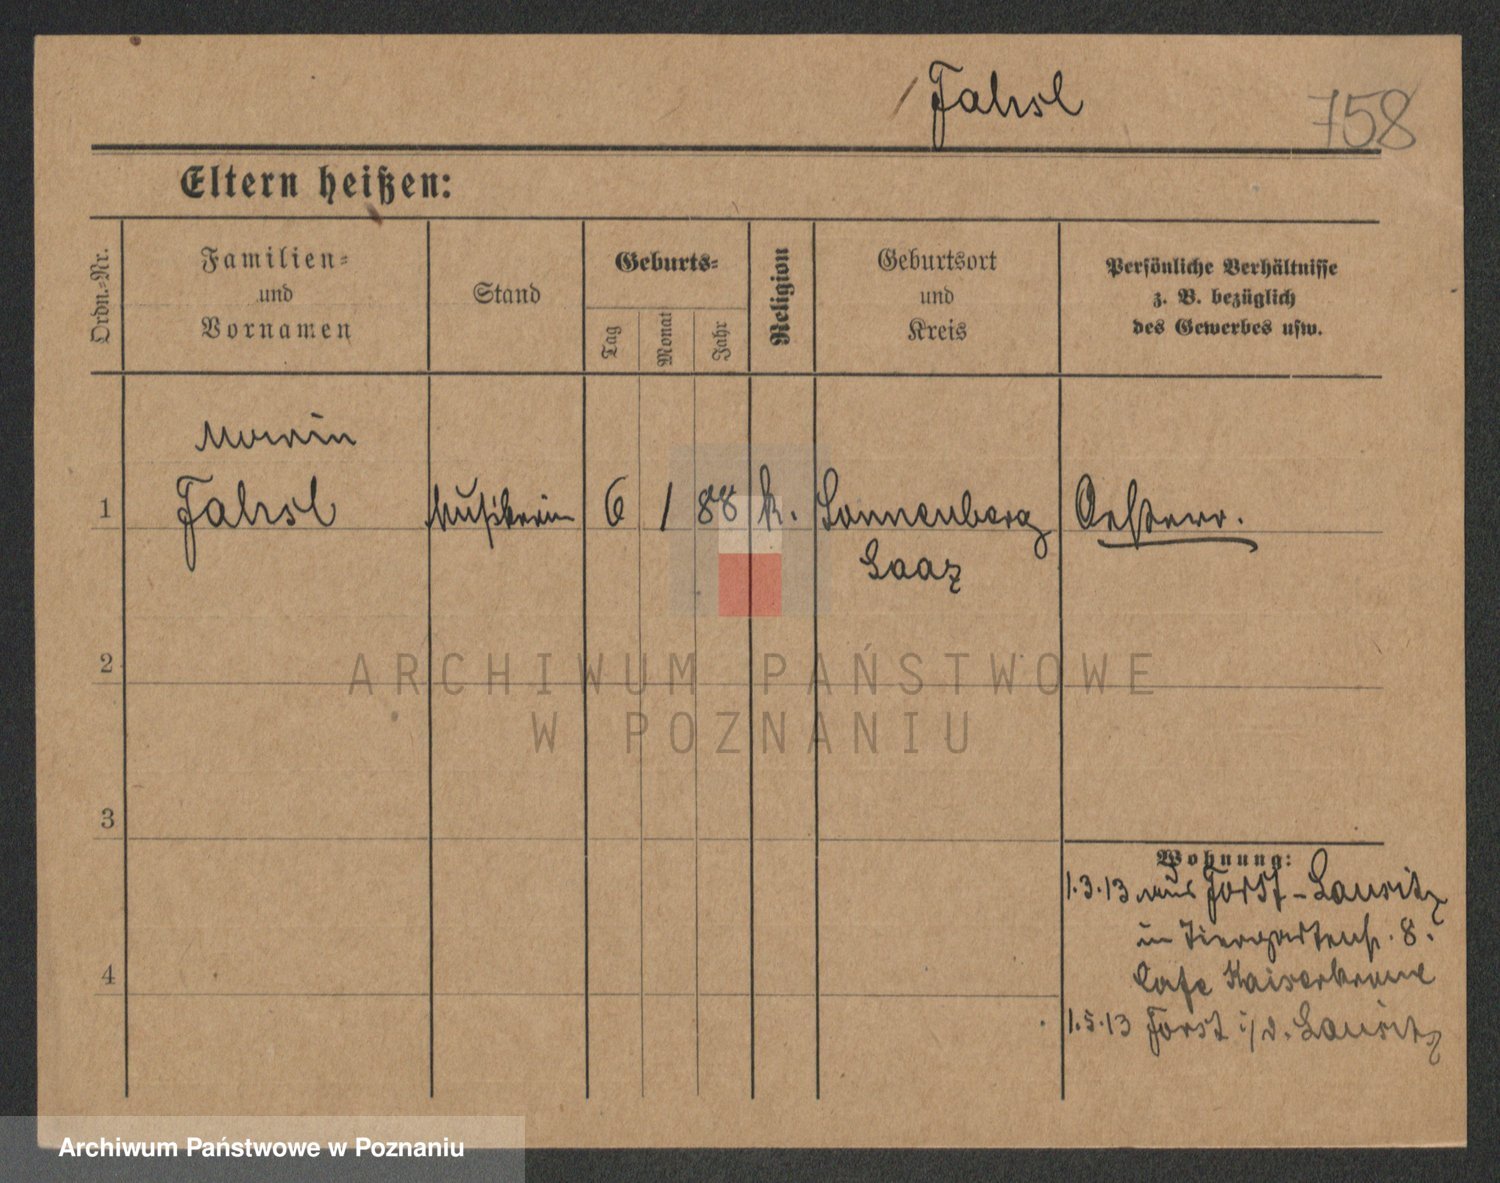 Fahsl
758
Eltern heißen:
Ordn.-Nr.
Familien-
und
Vornamen
Stand
Geburts-
Tag
Monat
Jahr
Religion
Geburtsort
und
Kreis
Persönliche Verhältnisse
z. B. bezüglich
des Gewerbes usw.
1
Fahsl
Musikerin
6
1
88
k.
Sonnenberg
Saaz
Oesterr.
2
ARCHIWUM PAŃSTWOWE
W POZNANIU
3
Wohnung:
1.3.13 aus Forst-Lausitz
in Tiergartenstr. 8.
Cafe Kaiserkrone
4
1.5.13 Forst i/d. Lausitz
Archiwum Państwowe w Poznaniu